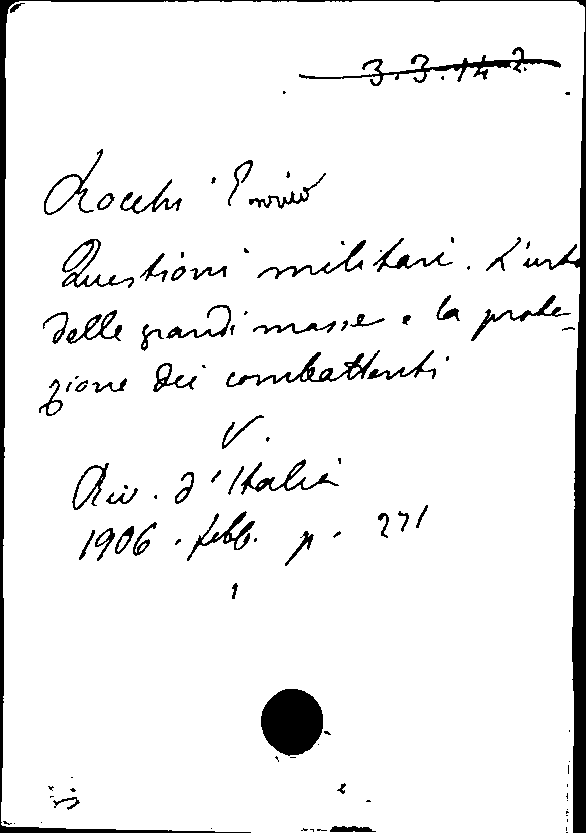 3.3.14 2
Rocchi Enrico
Questioni militari. L'urto
delle grandi masse e la prote-
zione dei combattenti
V.
Riv. d'Italia
1906. febb. p. 271